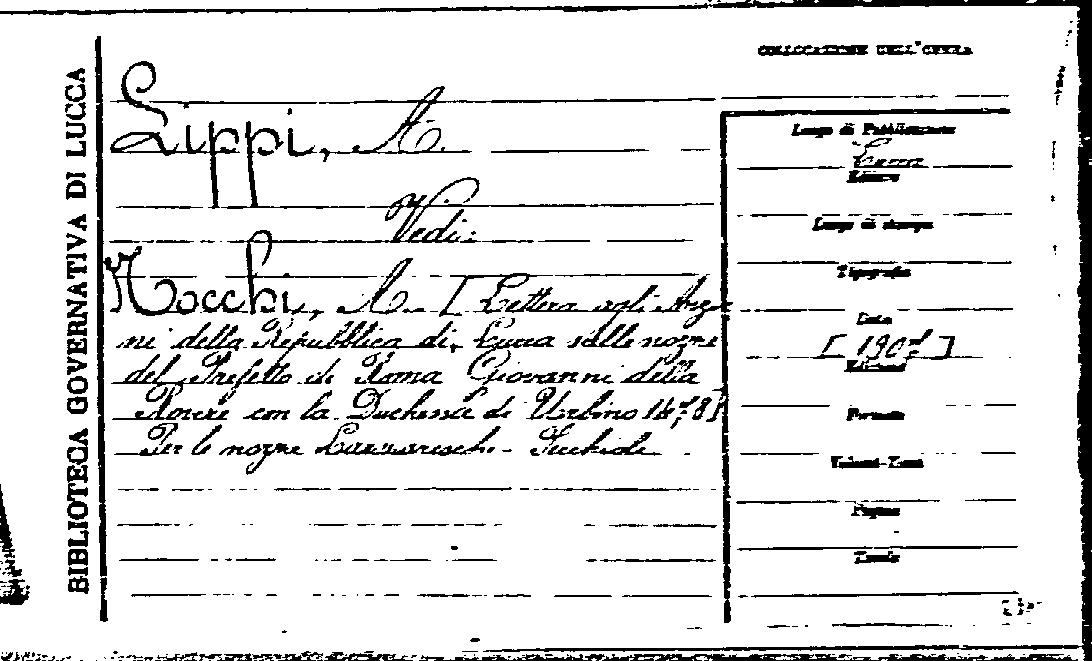 BIBLIOTECA GOVERNATIVA DI LUCCA
COLLOCAZIONE DELL'OPERA
Lippi, A.
Vedi:
Nocchi, A. [Lettera agli Anzia
ni della Repubblica di Lucca sulle nozze
del Prefetto di Roma Giovanni della
Rovere con la Duchessa di Urbino 1478]
Per le nozze Lazzareschi-
Luogo di Pubblicazione
Lucca
Editore
Luogo di stampa
Tipografia
Data
[1907]
Edizione
Formato
Volumi-Tomi
Pagine
Tavole